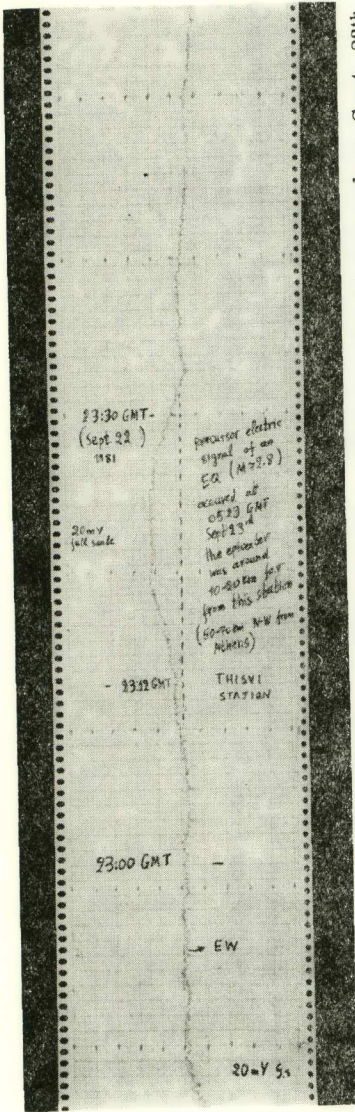 23:30 GMT -
(Sept 22)
1981
20mv
full scale
precursor electric
signal of an
EQ (M~2.8)
occured at
0523 GMT
Sept 23rd
the epicenter
was around
10-20km far
from this station
(60-70km N-W from
Athens)
- 23:12 GMT
THISVI
STATION
23:00 GMT -
EW
20mV
Sept. 28th